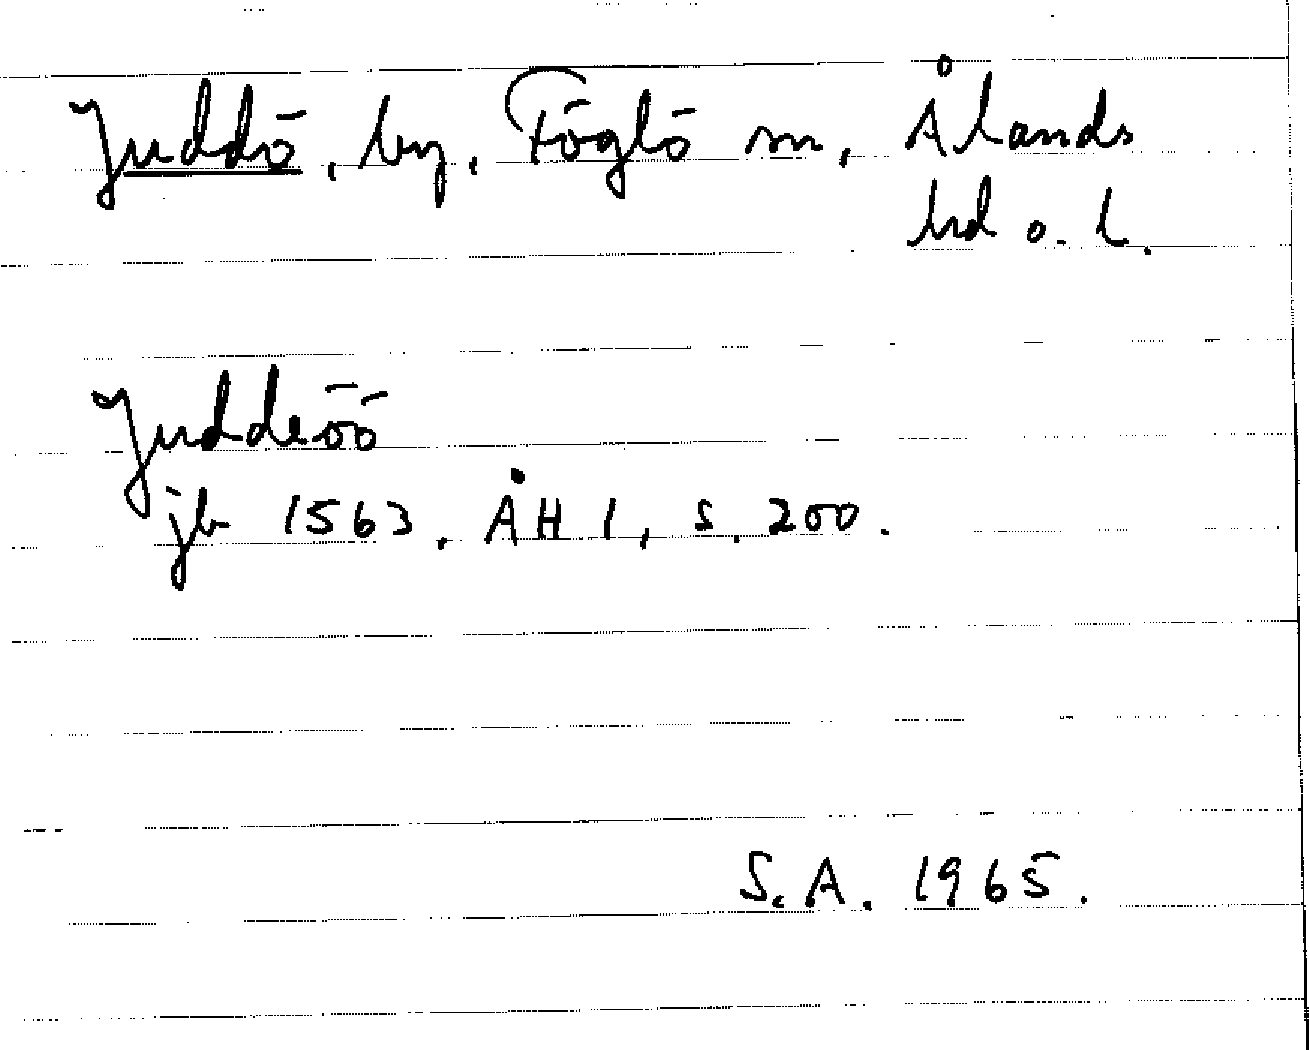 Juddö, by, Föglö sn, Ålands
hd o. l.
Juddeöö
jb 1563, ÅH 1, s. 200.
S.A. 1965.